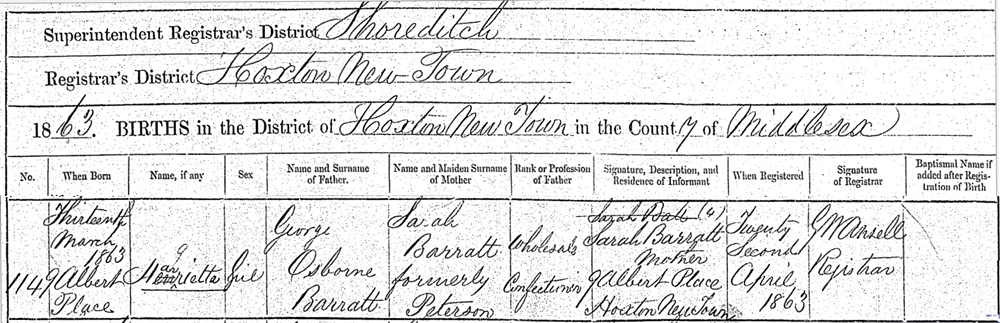 Superintendent Registrar's District Shoreditch
Registrar's District Hoxton New Town
1863. BIRTHS in the District of Hoxton New Town in the County of Middlesex
No. When Born Name, if any Sex Name and Surname of Father. Name and Maiden Surname of Mother Rank or Profession of Father Signature, Description, and Residence of Informant When Registered Signature of Registrar Baptismal Name if added after Registration of Birth
1149
Thirteenth
March
1863
9 Albert
Place
Henrietta
Girl
George
Osborne
Barratt
Sarah
Barratt
formerly
Peterson
Wholesale
Confectioner
Sarah Barratt
Mother
9 Albert Place
Hoxton New Town
Twenty
Second
April
1863
G W Ansell
Registrar